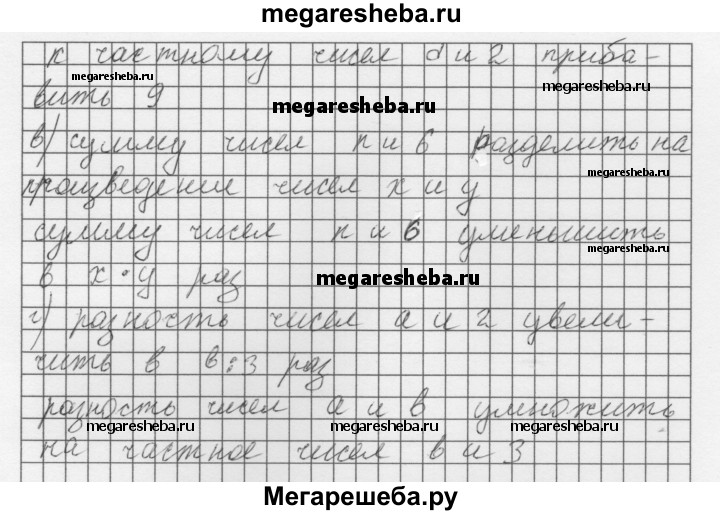 megaresheba.ru
к частному чисел d и 2 приба-
megaresheba.ru
megaresheba.ru
вить 9
megaresheba.ru
в) сумму чисел n и 6 разделить на
megaresheba.ru
произведение чисел x и y
сумму чисел n и 6 уменьшить
megaresheba.ru
в x · y раз
megaresheba.ru
г) разность чисел a и 2 увели-
чить в в:3 раз
разность чисел a и в умножить
megaresheba.ru megaresheba.ru megaresheba.ru
на частное чисел в и 3
Мегарешеба.ру